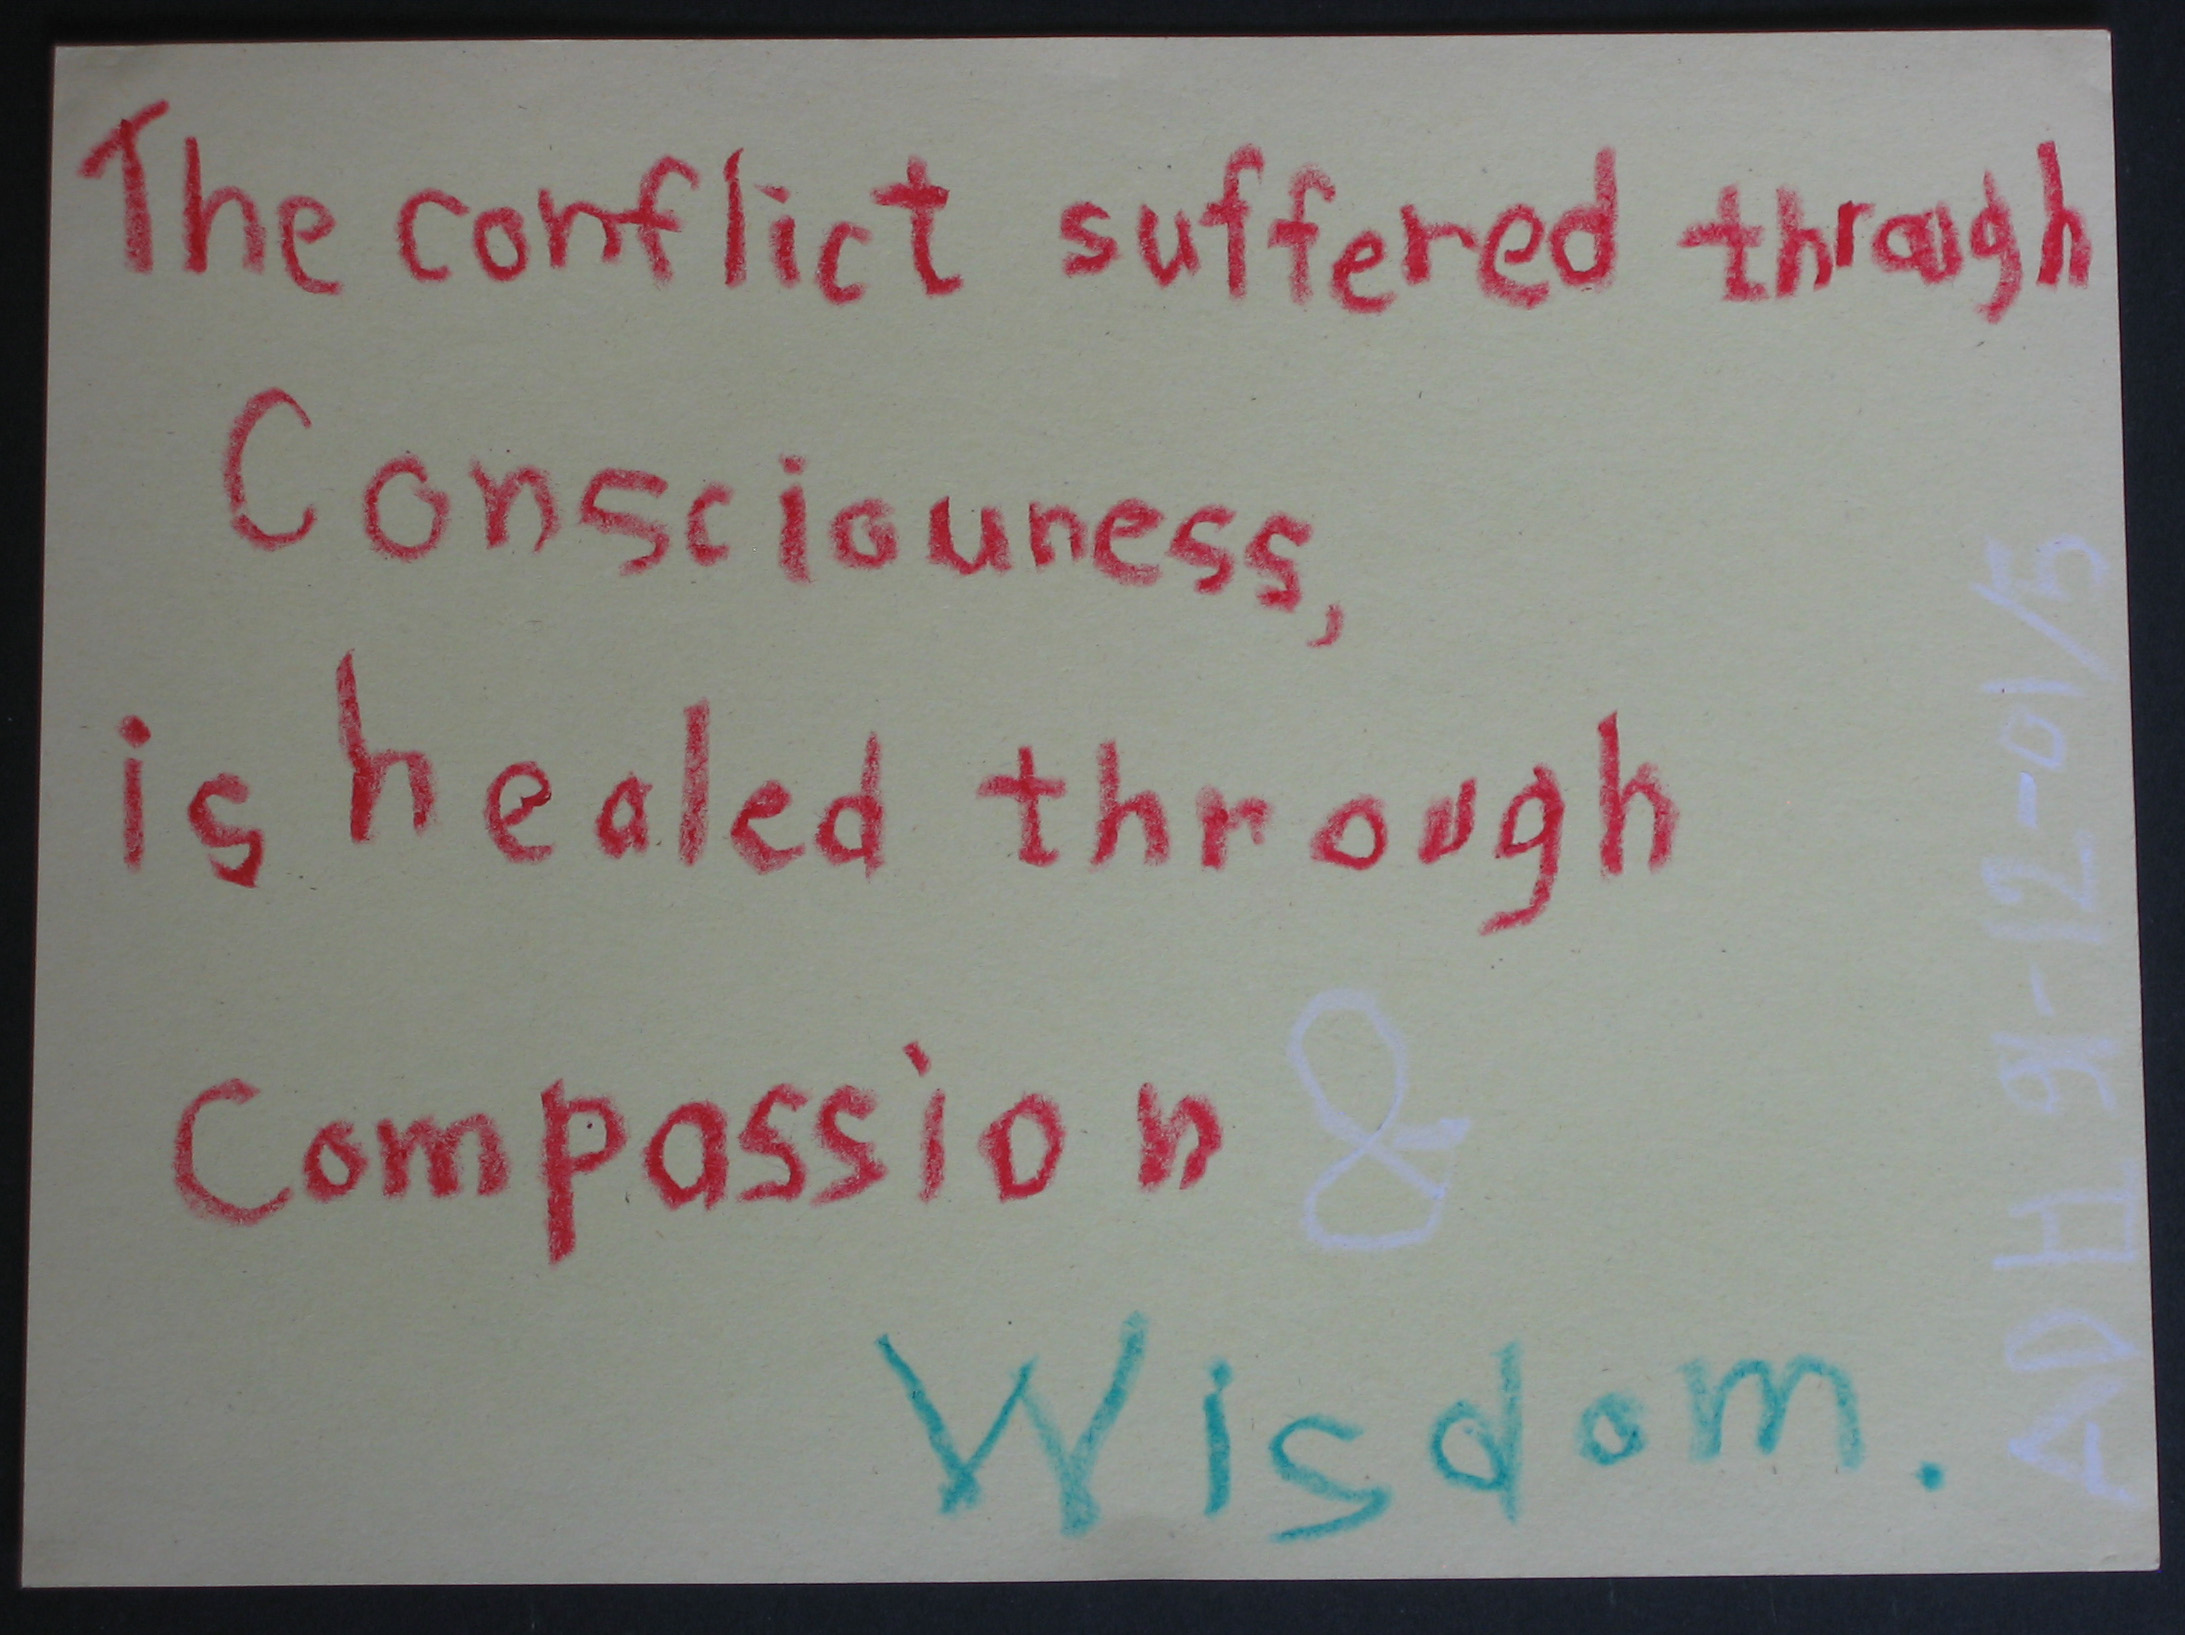 The conflict suffered through
Consciouness,
is healed through
Compassion &
Wisdom.
ADH 91-12-01/5